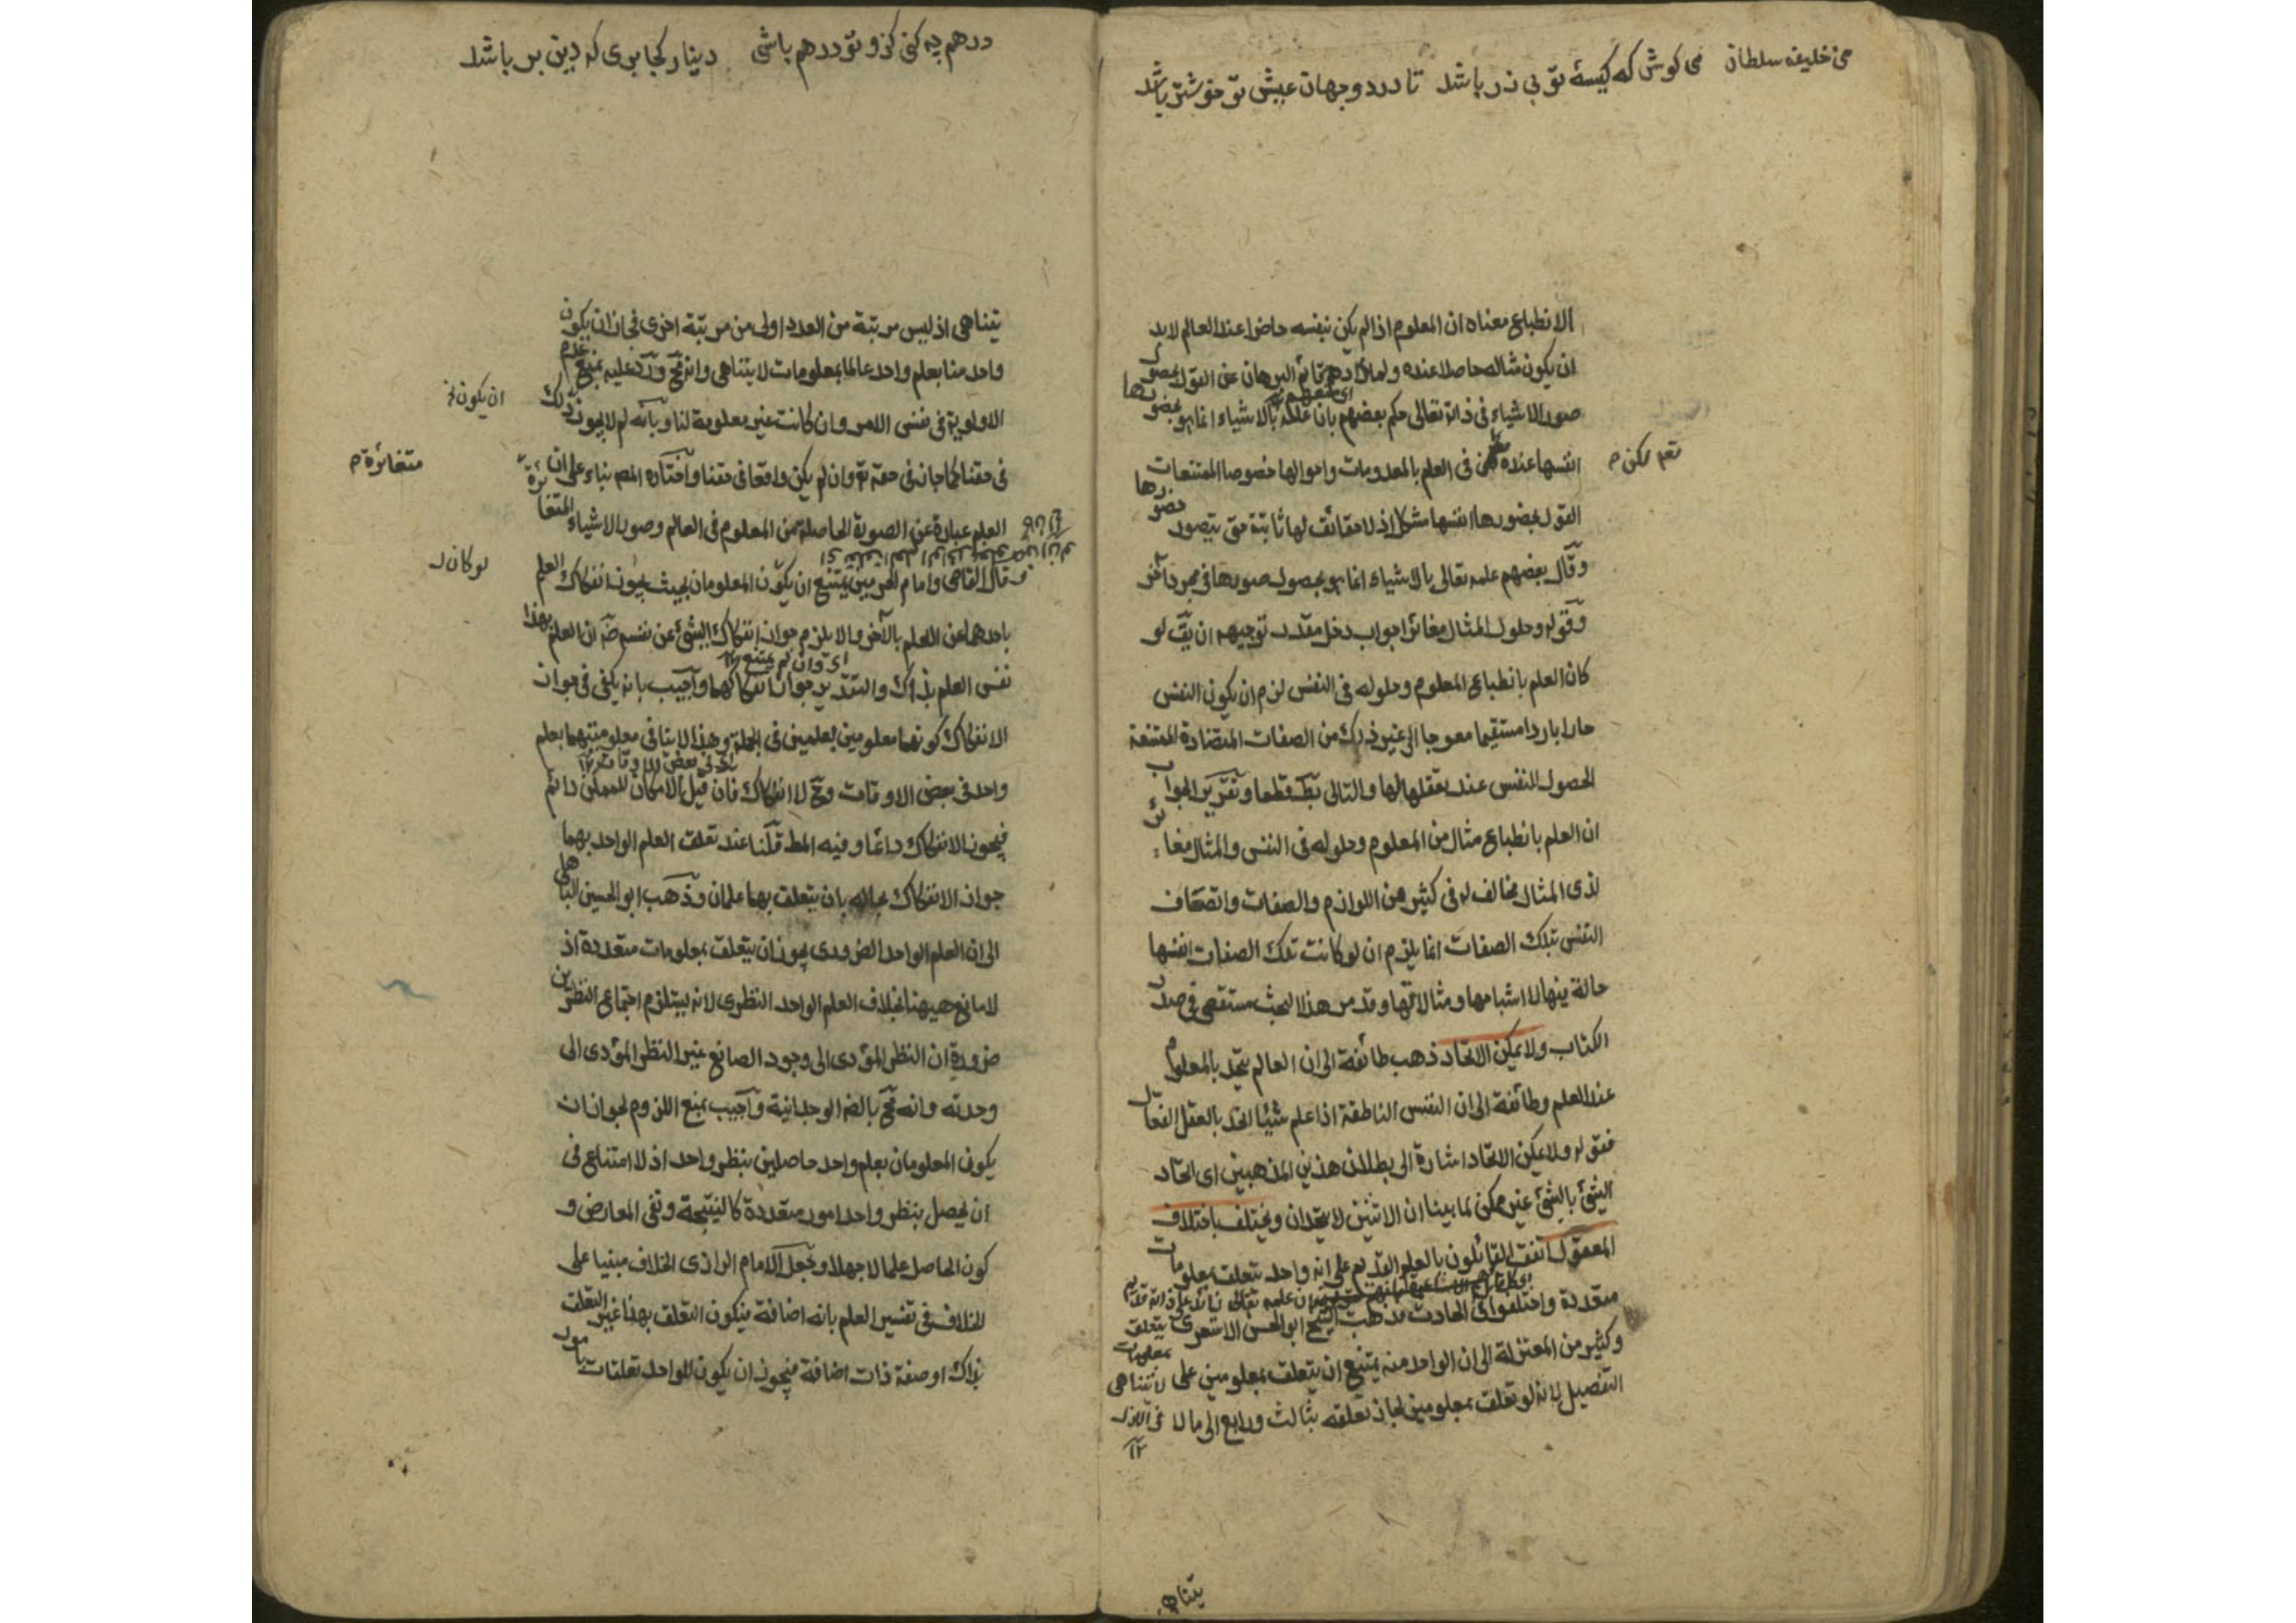 من خليفه سلطان می کوش که کیسهٔ تو بی زر باشد تا در دو جهان عیش تو خوشتر باشد
الانطباع معناه ان المعلوم اذا لم يكن بنفسه حاضرا عند العالم لابد
ان يكون مثاله حاصلا عنده ولما قادهم قائم البرهان عن القول بحصول
صور الاشياء فى ذاته تعالى حكم بعضهم بان علمه بالاشياء انما هو بحضورها
انفسها عنده فى العلم بالمعدومات واحوالها خصوصا الممتنعات
نعم لكن م
القول بحضورها انفسها مشكل اذ لا حقائق لها ثابتة حتى يتصور حضورها
وقال بعضهم علمه تعالى بالاشياء انما هو بحصول صورها فى مجرد آخر
وقوله وحلول المثال مغائر جواب دخل مقدر توجيهه ان يق لو
كان العلم بانطباع المعلوم وحلوله فى النفس لزم ان يكون النفس
حارا باردا مستقيما معوجا الى غير ذلك من الصفات المتضادة الممتنعة
الحصول للنفس عند تعقلها لها والتالى بط قطعا وتقرير الجواب
ان العلم بانطباع مثال من المعلوم وحلوله فى النفس والمثال مغائر
لذى المثال مخالف له فى كثير من اللوازم والصفات واتصاف
النفس بتلك الصفات انما يلزم ان لو كانت تلك الصفات انفسها
حالة فيها لا اشباحها ومثالاتها وقد مر هذا البحث مستقصى فى صدر
الكتاب ولا يمكن الاتحاد ذهب طائفة الى ان العالم يتحد بالمعلوم
عند العلم وطائفة الى ان النفس الناطقة اذا علم شيئا اتحد بالعقل الفعال
فقوله ولا يمكن الاتحاد اشارة الى بطلان هذين المذهبين اى اتحاد
الشئ بالشئ غير ممكن لما بينا ان الاثنين لا يتحدان ويختلف باختلاف
المعقول اتفق القائلون بالعلم القديم على انه واحد يتعلق بمعلومات
ان علمه تعالى زائد على ذاته قديم
متعددة واختلفوا فى الحادث فذهب الشيخ ابو الحسن الاشعرى يتعلق
وكثير من المعتزلة الى ان الواحد منه يمتنع ان يتعلق بمعلومين على
بمعلومات لا تتناهى
التفصيل لانه لو تعلق بمعلومين لجاز تعلقه بثالث ورابع الى ما لا
فى الازل ١٢
يتناهى
درهم چه کنی کزو تو درهم باشی دینار کجا بری که دین بر باشد
يتناهى اذ ليس مرتبة من العدد اولى من مرتبة اخرى فجاز ان يكون
واحد منا بعلم واحد عالما بمعلومات لا يتناهى وانه مح ورد عليه بمنع عدم
الاولوية فى نفس الامر وان كانت غير معلومة لنا وبانه لم لا يجوز ذلك
ان يكون نخ
فى حقنا كما جاز فى حقه تع وان لم يكن واقعا فى حقنا واختاره المص بناء على ان
متغائرة م
العلم عبارة عن الصورة الحاصلة من المعلوم فى العالم وصور الاشياء المتغائرة
وقال القاضى وامام الحرمين يمتنع ان يكون المعلومان بحيث يجوز انفكاك العلم
لو كان ل
باحدهما عن العلم بالآخر والا يلزم جواز انفكاك الشئ عن نفسه ضه ان العلم بهذا
اى وان لم يمتنع ١٢
نفس العلم بذلك والتقدير جواز انفكاكهما واجيب بانه يكفى فى جواز
الانفكاك كونهما معلومين بعلمين فى الجملة وهذا لا ينافى معلوميتهما بعلم
واحد فى بعض الاوقات وح لا انفكاك فان قيل الامكان للممكن دائم
فيجوز الانفكاك دائما وفيه المط قلنا عند تعلق العلم الواحد بهما
جواز الانفكاك بحاله بان يتعلق بهما علمان وذهب ابو الحسين الباهلى
الى ان العلم الواحد الضرورى يجوز ان يتعلق بمعلومات متعددة اذ
لا مانع هيهنا بخلاف العلم الواحد النظرى لانه يستلزم اجتماع النظرين
ضرورة ان النظر المؤدى الى وجود الصانع غير النظر المؤدى الى
وحدته وانه مح بالضه الوجدانية واجيب بمنع اللزوم لجواز ان
يكون المعلومان بعلم واحد حاصلين بنظر واحد اذ لا امتناع فى
ان يحصل بنظر واحد امور متعددة كالنتيجة ونفى المعارض و
كون الحاصل علما لا جهلا وجعل الامام الرازى الخلاف مبنيا على
الخلاف فى تفسير العلم بانه اضافة فيكون التعلق بهذا غير التعلق
بذاك او صفة ذات اضافة فيجوز ان يكون للواحد تعلقات بامور